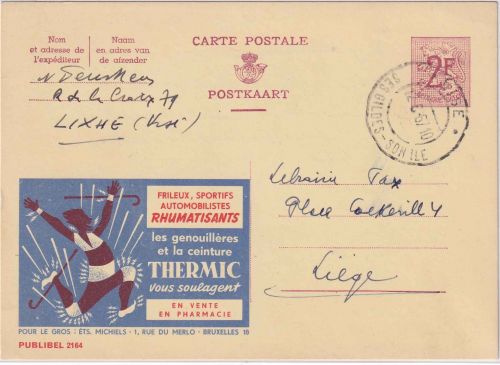 Nom
et adresse de
l'expéditeur
Naam
en adres van
de afzender
CARTE POSTALE
POSTKAART
2F
LIXHE
SES BULBES - SON ILE
Librairie Pax
Place Cockerill 4
Liége
FRILEUX, SPORTIFS
AUTOMOBILISTES
RHUMATISANTS
les genouillères
et la ceinture
THERMIC
vous soulagent
EN VENTE
EN PHARMACIE
POUR LE GROS : ÉTS. MICHIELS · 1, RUE DU MERLO · BRUXELLES 18
PUBLIBEL 2164